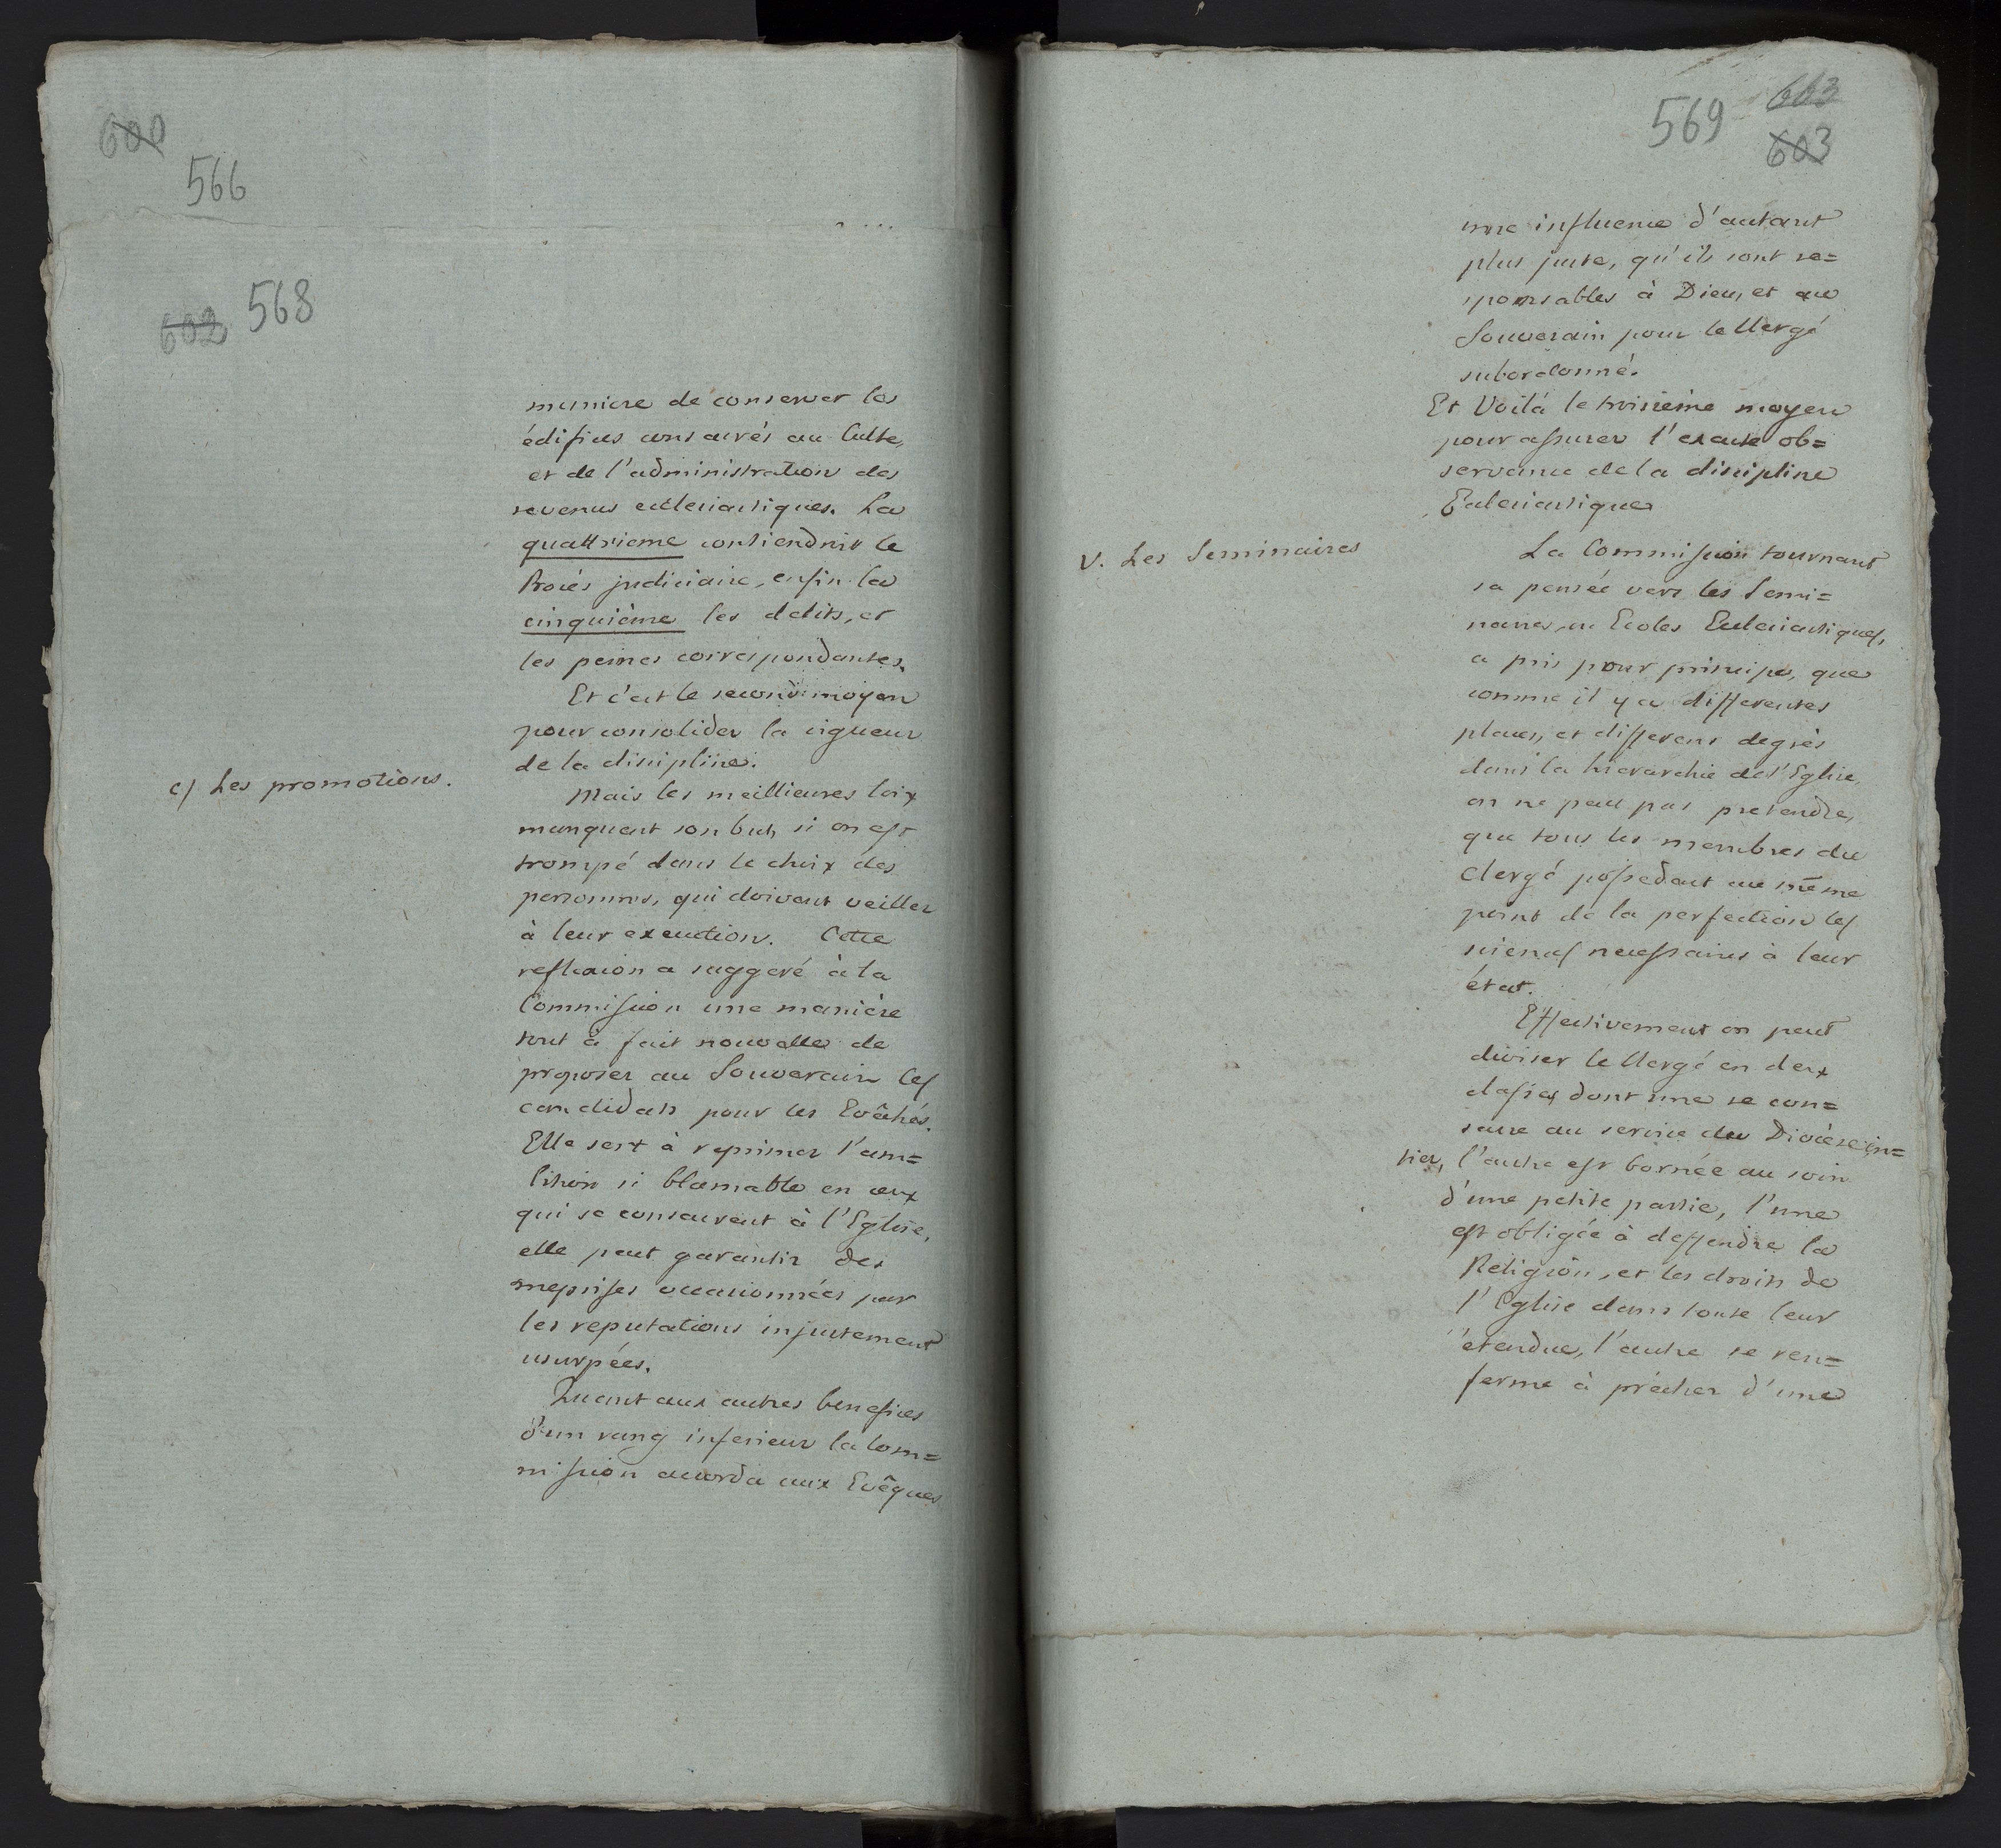 600
566
602 568
maniere de conserver les
édifices consacrés au Culte,
et de l'administration des
revenus ecclesiastiques. La
quattrieme contiendroit le
Procés judiciaire, enfin la
cinquième les delits, et
les peines correspondantes.
Et c'est le second moyen
pour consolider la vigueur
de la discipline.
c) Les promotions.
Mais les meillieures loix
manquent son but, si on est
trompé dans le choix des
personnes, qui doivent veiller
à leur execution. Cette
reflexion a suggeré à la
Commission une manière
tout à fait nouvelle de
proposer au Souverain les
candidats pour les Evêchés.
Elle sert à reprimer l'am=
bition si blamable en ceux
qui se consacrent à l'Eglise,
elle peut garantir des
meprises occasionnées par
les reputations injustement
usurpées.
Quant aux autres benefices
d'un rang inferieur la Com=
mission accorda aux Evêques
569 603
603
une influence d'autant
plus juste, qu'ils sont re=
sponsables à Dieu, et au
Souverain pour le Clergé
subordonné.
Et Voilà le troisieme moyen
pour assurer l'exacte ob=
servance de la discipline
Eclesiastique
V. Les Seminaires
La Commission tournant
sa pensée vers les Semi=
naires, ou Ecoles Eclesiastiques,
a pris pour principe, que
comme il y a differentes
places, et differens degrès
dans la hierarchie de l'Eglise,
on ne peut pas pretendre,
que tous les membres du
Clergé possedent au même
point de la perfection les
sciences necessaires à leur
état.
Effectivement on peut
diviser le Clergé en deux
classes, dont une se con=
sacre au service du Diocèse in=
tier, l'autre est bornée au soin
d'une petite partie, l'une
est obligée à deffendre la
Religion, et les droits de
l'Eglise dans toute leur
étendue, l'autre se ren=
ferme à prêcher d'une